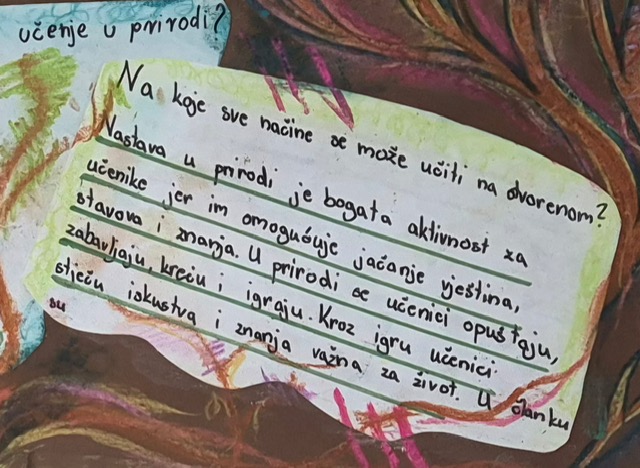 učenje u prirodi?
Na koje sve načine se može učiti na otvorenom?
Nastava u prirodi je bogata aktivnost za
učenike jer im omogućuje jačanje vještina,
stavova i znanja. U prirodi se učenici opuštaju,
zabavljaju, kreću i igraju. Kroz igru učenici
stječu iskustva i znanja važna za život. U članku
su